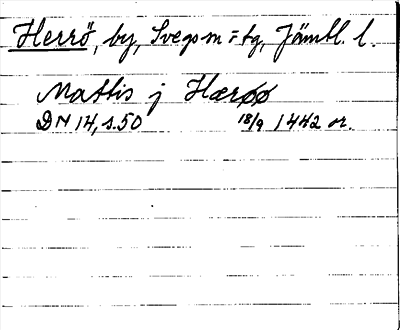 Herrö, by, Svegs m=tg, Jämtl. l.
Mattis j Hærøø
DN 14, s. 50 18/9 1442 or.